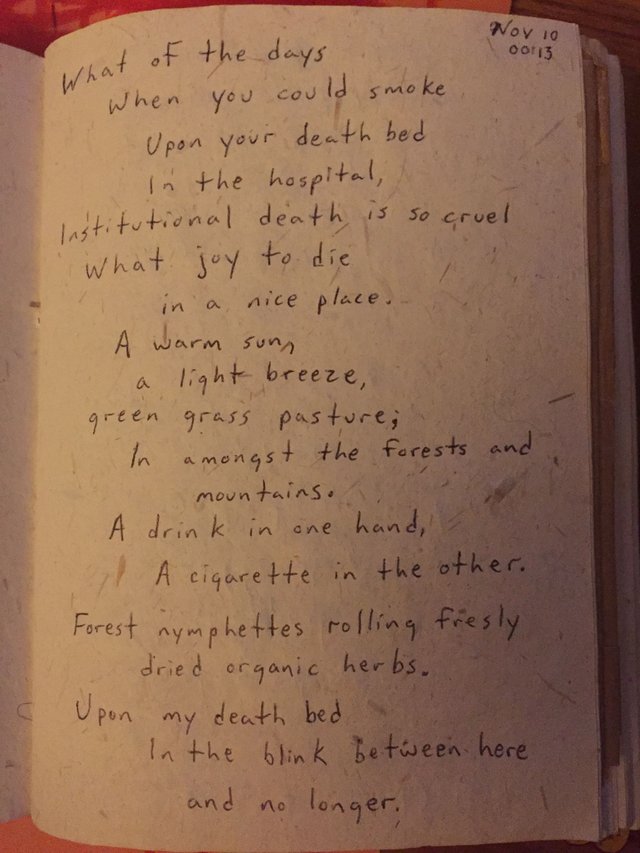 Nov 10
00:13
What of the days
When you could smoke
Upon your death bed
In the hospital,
Institutional death is so cruel
What joy to die
in a nice place.
A warm sun,
a light breeze,
green grass pasture;
In amongst the forests and
mountains.
A drink in one hand,
A cigarette in the other.
Forest nymphettes rolling fresly
dried organic herbs.
Upon my death bed
In the blink between here
and no longer.